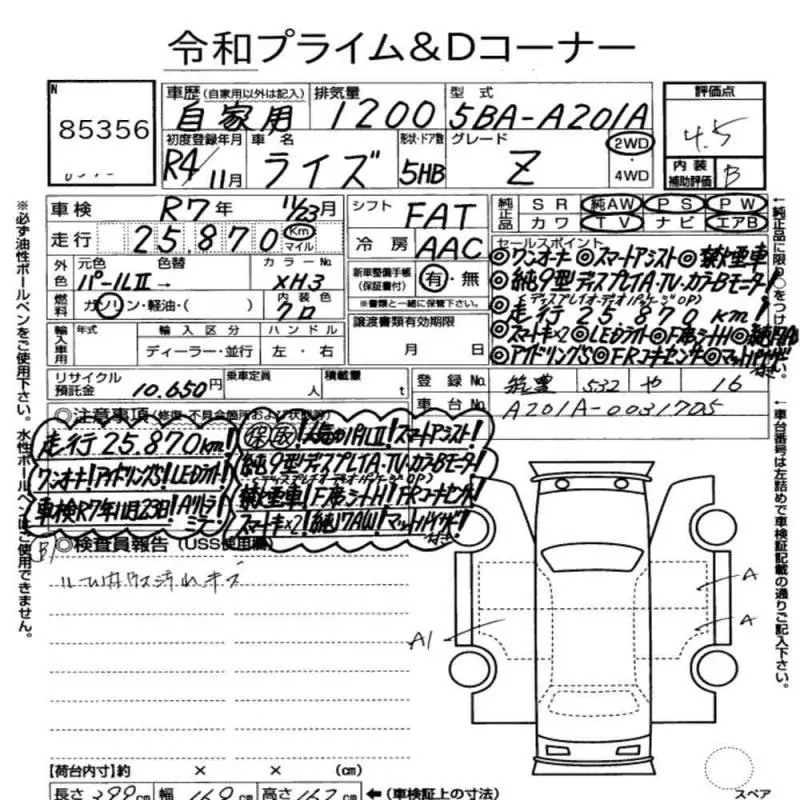 令和プライム&Dコーナー
N
85356
車歴(自家用以外は記入)
自家用
排気量
1200
型式
5BA-A201A
評価点
4.5
初度登録年月
R4/11月
車名
ライズ
形状・ドア数
5HB
グレード
Z
2WD
・
4WD
内装
補助評価
B
車検
R7年 11/23月
シフト
FAT
純正品
SR 純AW PS PW
カワ TV ナビ エアB
走行
25.870
Km
マイル
冷房
AAC
外色
元色
パールⅡ→
色替
カラーNo.
XH3
新車整備手帳
(保証書付)
有・無
※書類と一緒に保管下さい。
燃料
ガソリン・軽油・( )
内装色
クロ
セールスポイント
◎ワンオーナー◎スマートアシスト◎禁煙車
◎純9型ディスプレイA・TV・カラーBモニター!
(ディスプレイオーディオパッケージOP)
◎走行25.870km!
◎スマートキー×2◎LEDライト◎F席シートH◎純17AW
◎アイドリングS◎FRコーナーセンサー◎マットバイザー付き!
輸入車用
年式
輸入区分
ディーラー・並行
ハンドル
左・右
譲渡書類有効期限
月 日
リサイクル
預託金
10.650円
乗車定員
人
積載量
t
登録No.
筑豊 532 や 16
車台No.
A201A-0031705
◎注意事項(修復・不具合箇所および状態等)
走行25.870km!
ワンオーナー!アイドリングS!LEDライト!
車検R7年11月23日!Aハライトミラー!
保取!人気のパールⅡ!スマートアシスト!
純9型ディスプレイA・TV・カラーBモニター!
(ディスプレイオーディオパッケージOP)
禁煙車!F席シートH!FRコーナーセンサー!
スマートキー×2!純17AW!マットバイザー付き!
◎検査員報告(USS使用欄)
B
ルーム内ウス汚れキズ
A
A
A1
【荷台内寸】約 × × (cm)
長さ399cm 幅169cm 高さ162cm ←(車検証上の寸法)
スペア
※必ず油性ボールペンをご使用下さい。水性ボールペンはご使用できません。
←純正品に限り○をつけ
←車台番号は左詰めで車検証記載の通りご記入下さい。